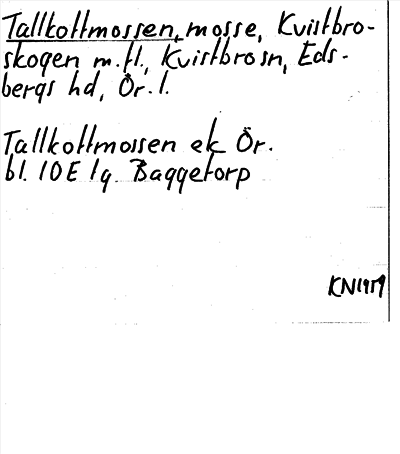 Tallkottmossen, mosse, Kvistbro-
skogen m.fl., Kvistbro sn, Eds-
bergs hd, Ör. l.
Tallkottmossen ek Ör.
bl. 10E 1g. Baggetorp